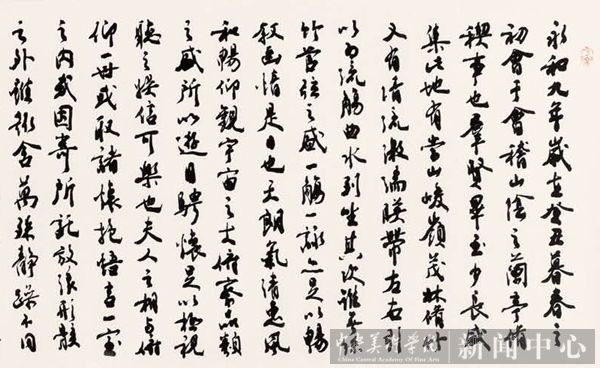 永和九年歲在癸丑暮春之
初會于會稽山陰之蘭亭脩
稧事也羣賢畢至少長咸
集此地有崇山峻嶺茂林脩竹
又有清流激湍暎帶左右引
以為流觴曲水列坐其次雖無絲
竹管弦之盛一觴一詠亦足以暢
敘幽情是日也天朗氣清惠風
和暢仰觀宇宙之大俯察品類
之盛所以遊目騁懷足以極視
聽之娛信可樂也夫人之相與俯
仰一世或取諸懷抱悟言一室
之內或因寄所託放浪形骸
之外雖趣舍萬殊靜躁不同
中央美術學院
China Central Academy Of Fine Arts
新闻中心